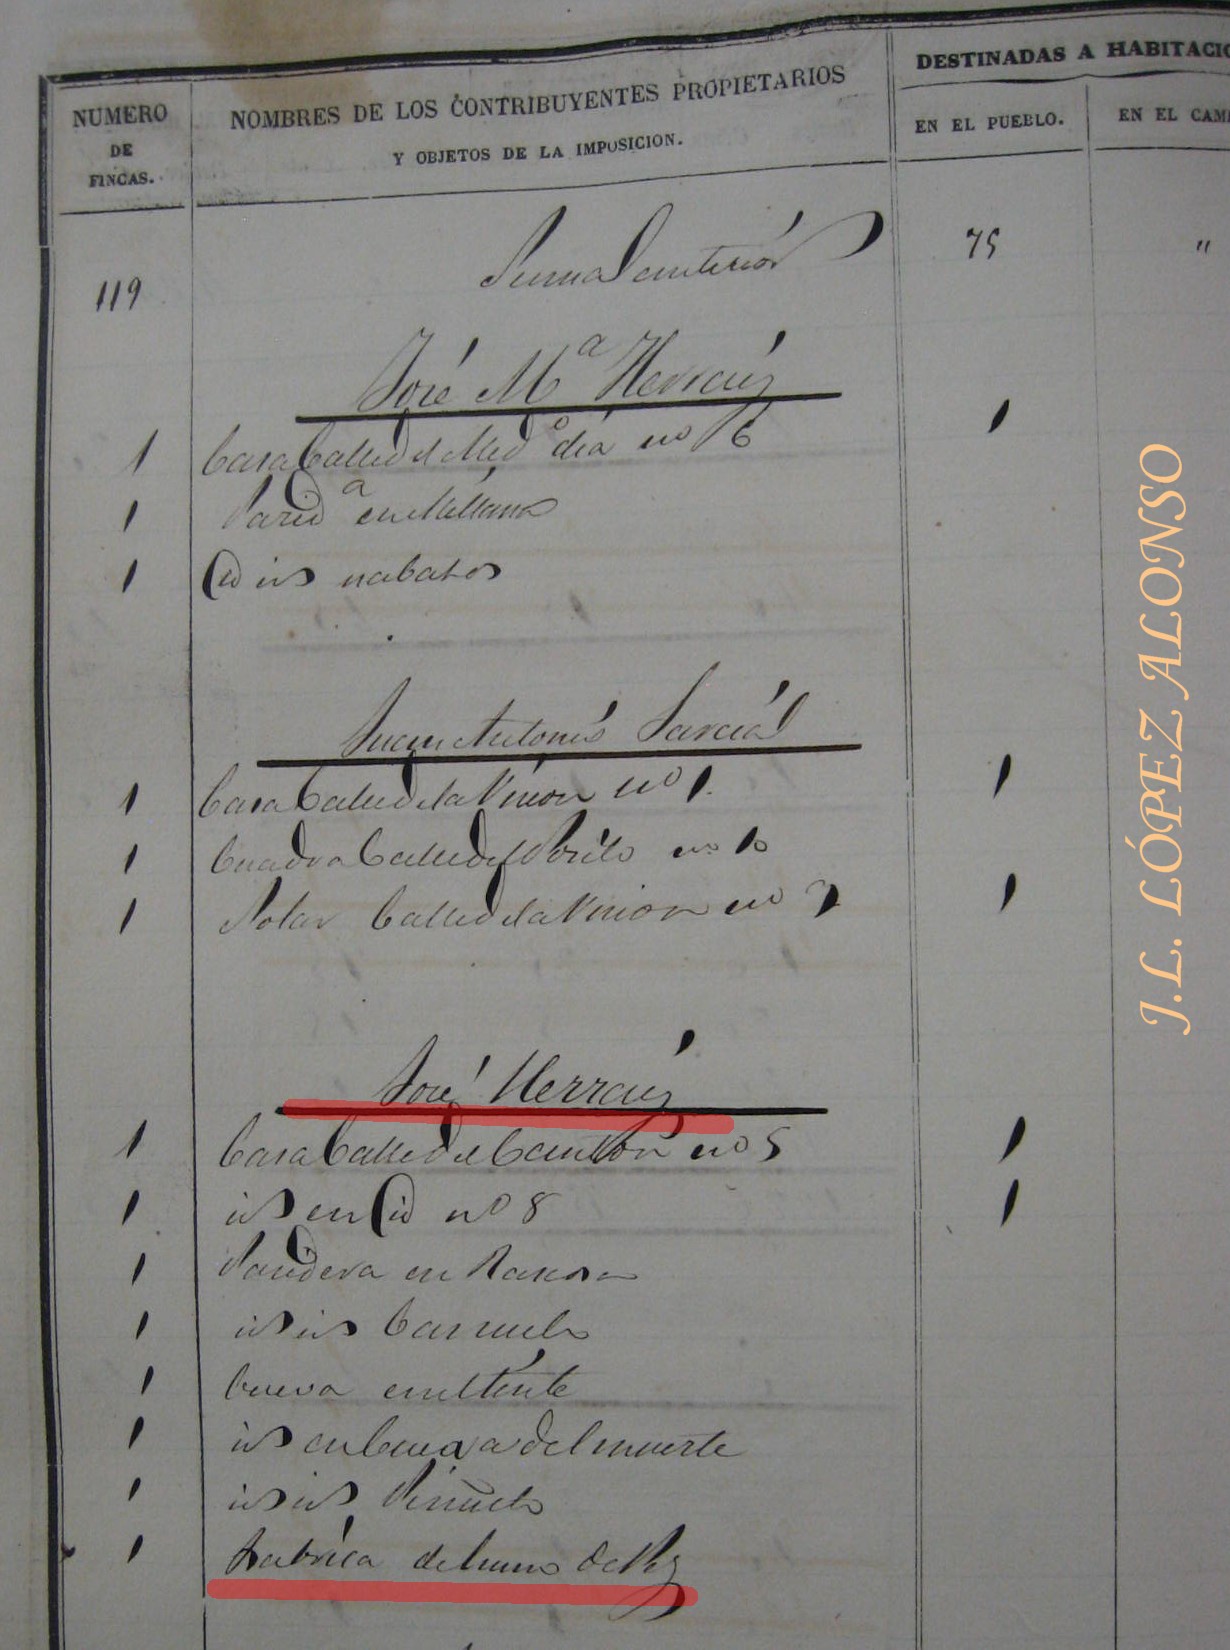 NUMERO DE FINCAS.
NOMBRES DE LOS CONTRIBUYENTES PROPIETARIOS
Y OBJETOS DE LA IMPOSICION.
DESTINADAS A HABITACIO
EN EL PUEBLO.
EN EL CAM
119 Suma anterior 75 "
José Mª Herraiz
1 Casa Calle del Medºdía nº 6 1
1 Paridª en
1 Id id nabatos
Juan Antonio García
1 Casa Calle de la Union nº 1. 1
1 Cuadra Calle del Posito nº 10
1 Solar Calle de la Union nº 2 1
José Herraiz
1 Casa Calle del Canton nº 5 1
1 id en id nº 8 1
1 Paridera en
1 id id
1 Cueva en
1 id en Cueva del muerte
1 id id
1 Fabrica de humo de Pez
J.L. LÓPEZ ALONSO